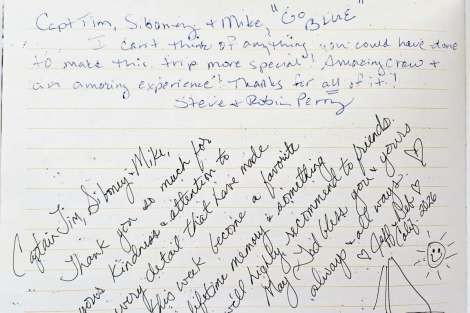 Capt Tim, Siboney & Mike, "GO BLUE"
I can't think of anything you could have done
to make this trip more special! Amazing Crew &
an amazing experience! Thanks for all of it!
Steve & Robin Perry
Captain Tim, Siboney & Mike,
Thank you so much for
your kindness & attention to
every detail that have made
this week become a favorite
lifetime memory & something
will highly recommend to friends.
May God bless you & yours
always & all ways.